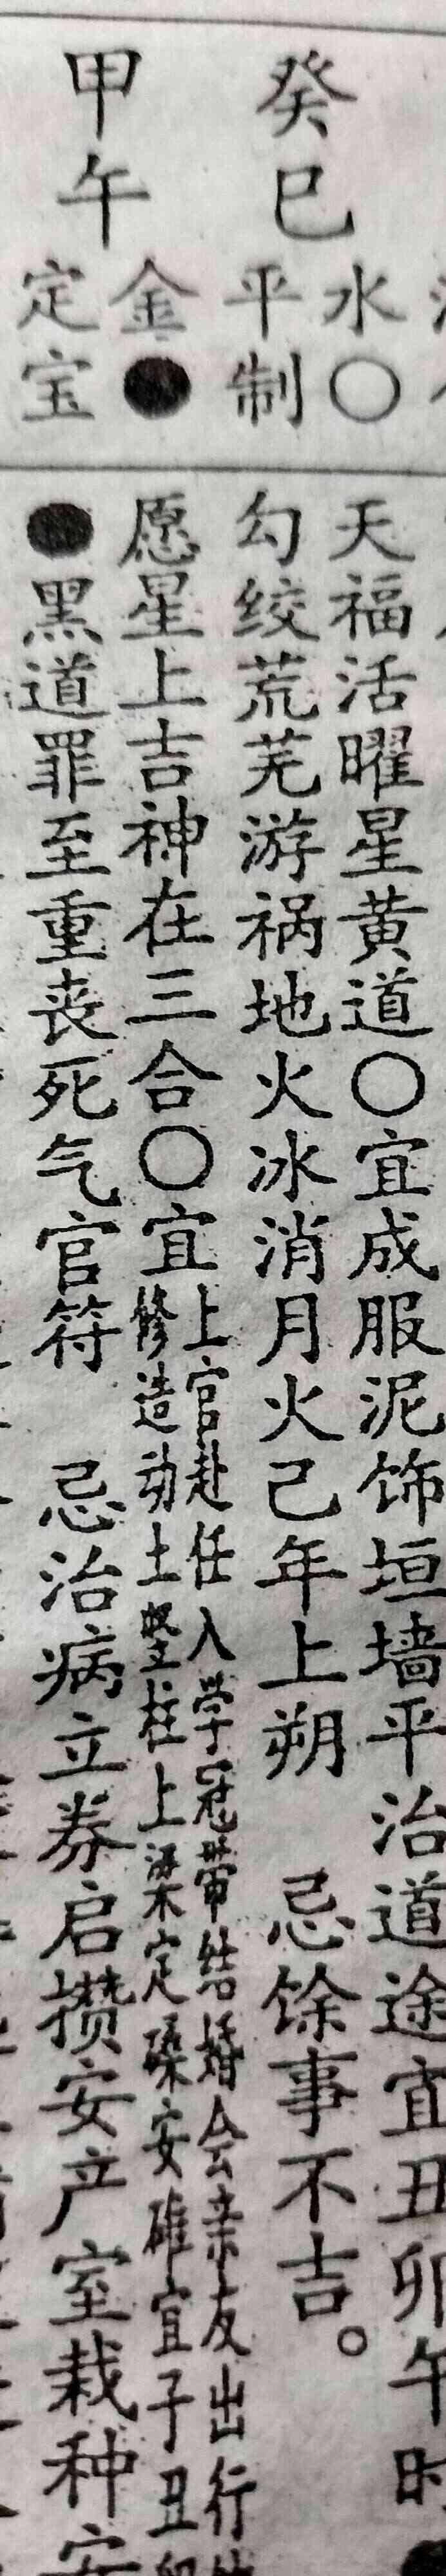 癸巳
水○
平制
天福活曜星黄道○宜成服泥饰垣墙平治道途宜丑卯午时
勾绞荒芜游祸地火冰消月火己年上朔 忌馀事不吉。
甲午
金●
定宝
愿星上吉神在三合○宜
上官赴任入学冠带结婚会亲友出行
修造动土竖柱上梁定磉安碓宜子丑
●黑道罪至重丧死气官符 忌治病立券启攒安产室栽种安